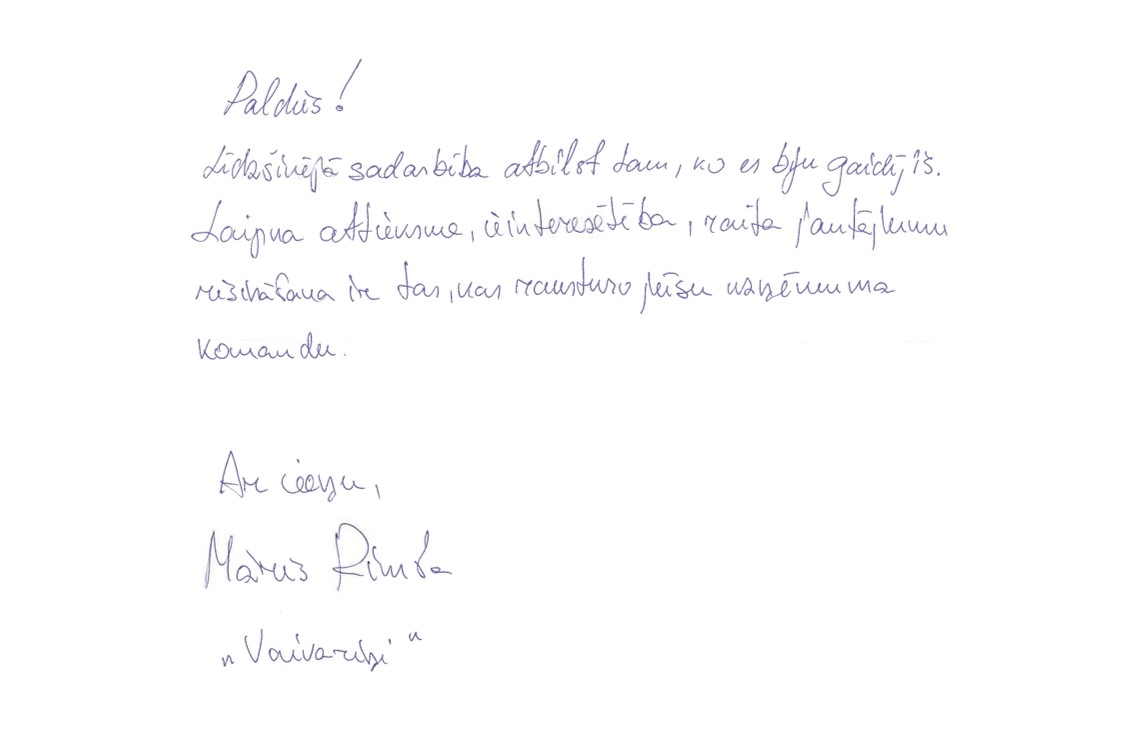 Paldies!
Līdzšinējā sadarbība atbilst tam, ko es biju gaidījis.
Laipna attieksme, ieinteresētība, raita jautājumu
risināšana ir tas, kas raksturo jūsu uzņēmuma
komandu.
Ar cieņu,
Māris Rimša
"Vaivariņi"